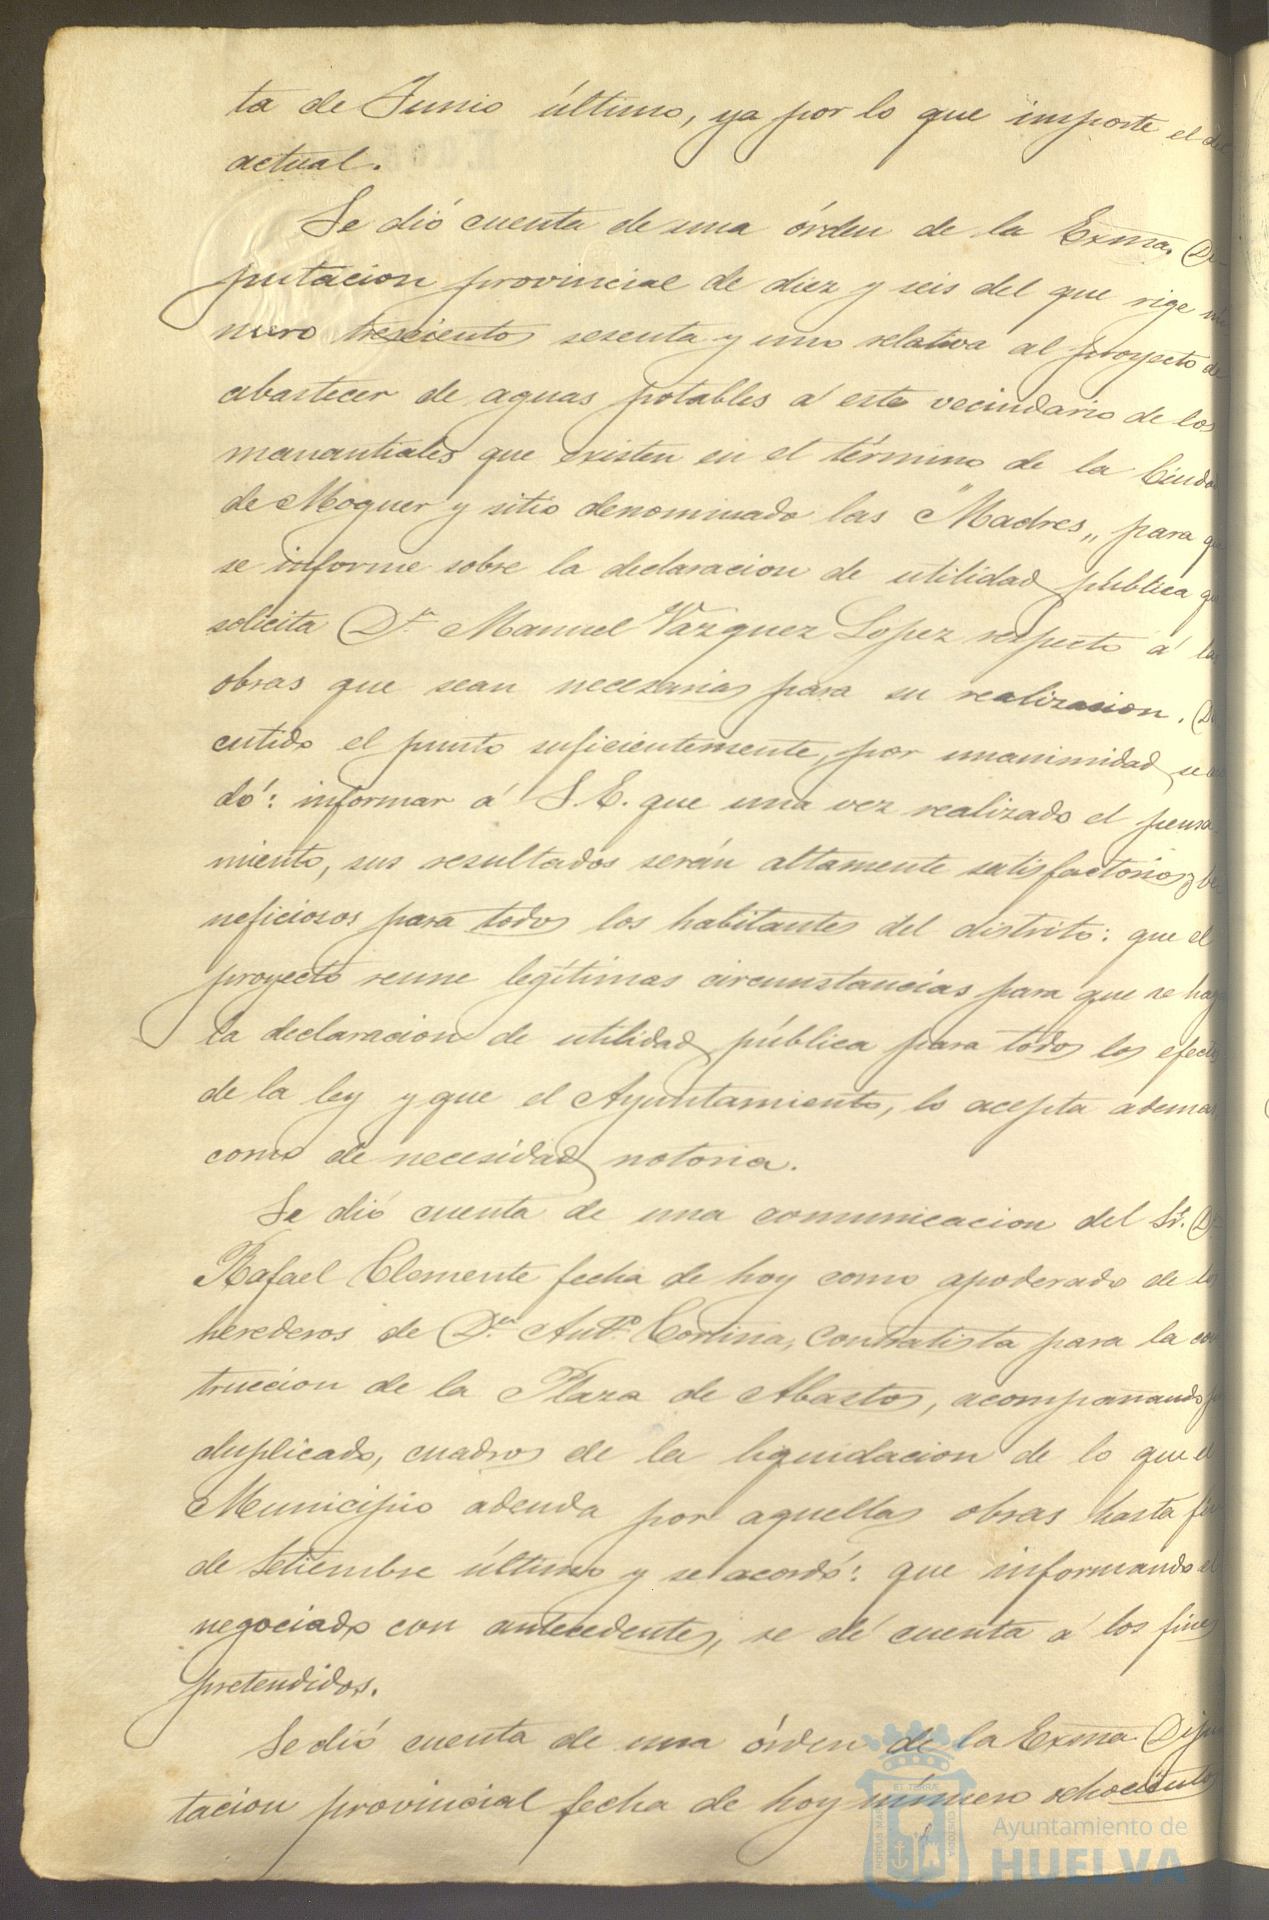 ta de Junio último, ya por lo que importe el del
actual.
Se dió cuenta de una órden de la Exma. Di-
putacion provincial de diez y seis del que rige nú
mero trescientos sesenta y uno relativa al proyecto de
abastecer de aguas potables á este vecindario de los
manantiales que existen en el término de la Ciuda
de Moguer y sitio denominado las "Madres„ para que
se informe sobre la declaracion de utilidad pública qu
solicita Dn Manuel Vazquez Lopez respecto á la
obras que sean necesarias para su realizacion. Di
cutido el punto suficientemente, por unanimidad se aco
dó: informar á S. E. que una vez realizado el pensa
miento, sus resultados serán altamente satisfactorios y be
neficiosos para todos los habitantes del distrito: que el
proyecto reune legítimas circunstancias para que se haga
la declaracion de utilidad pública para todos los efecto
de la ley y que el Ayuntamiento, lo acepta ademas
como de necesidad notoria.
Se dió cuenta de una comunicacion del Sr. Dn
Rafael Clemente fecha de hoy como apoderado de lo
herederos de Dn Anto. Cortina, Contratista para la con
truccion de la Plaza de Abastos, acompañando p
duplicado, cuadros de la liquidacion de lo que el
Municipio adeuda por aquellas obras hasta fin
de Setiembre último y se acordó: que informando el
negociado con antecedentes, se dé cuenta á los fines
pretendidos.
Se dió cuenta de una órden de la Exma Dipu
tacion provincial fecha de hoy número ochocientos
Ayuntamiento de
HUELVA